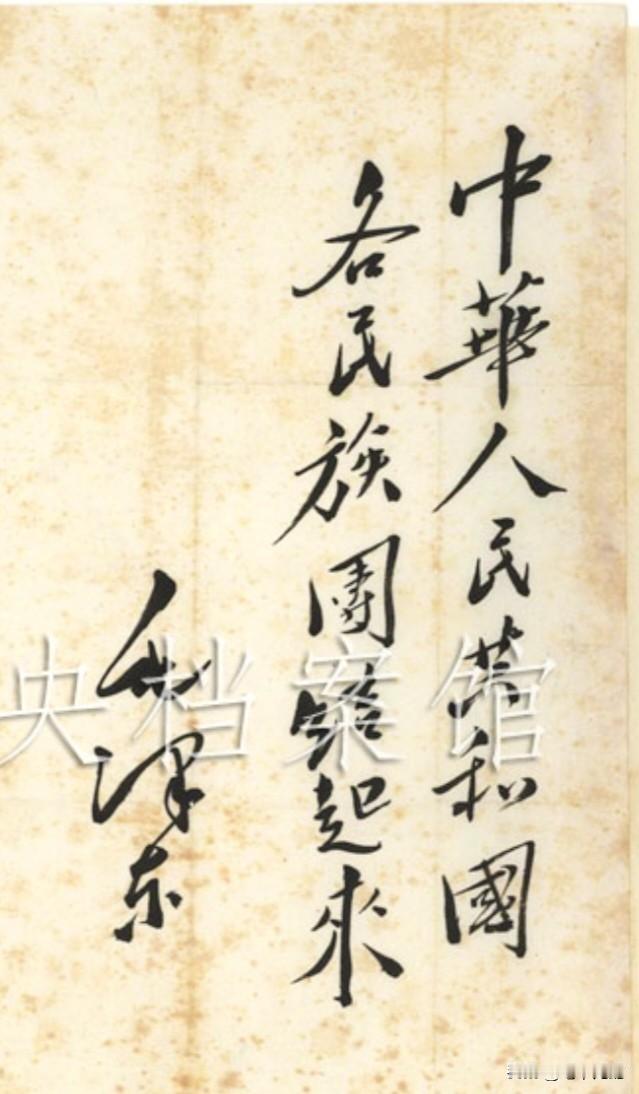 中華人民共和國
各民族團結起來
毛澤东
央档案馆